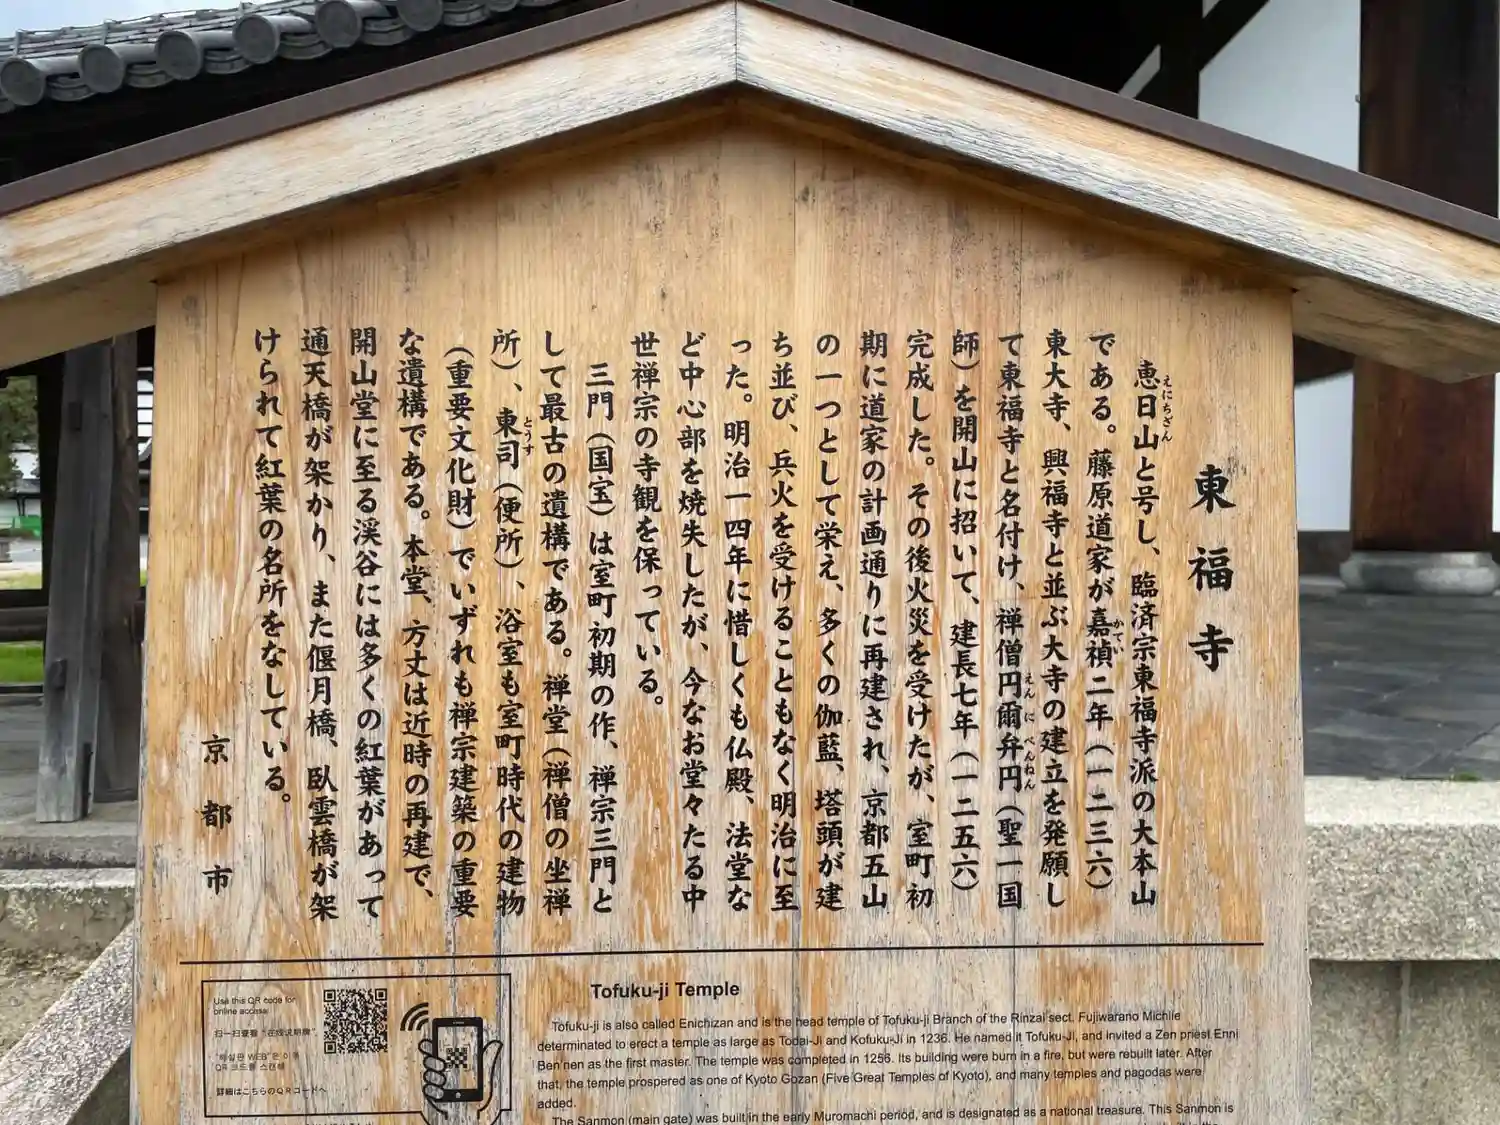 東福寺
恵日山と号し、臨済宗東福寺派の大本山
えにちざん
である。藤原道家が嘉禎二年（一二三六）
かてい
東大寺、興福寺と並ぶ大寺の建立を発願し
て東福寺と名付け、禅僧円爾弁円（聖一国
えんにべんねん
師）を開山に招いて、建長七年（一二五六）
完成した。その後火災を受けたが、室町初
期に道家の計画通りに再建され、京都五山
の一つとして栄え、多くの伽藍、塔頭が建
ち並び、兵火を受けることもなく明治に至
った。明治一四年に惜しくも仏殿、法堂な
ど中心部を焼失したが、今なお堂々たる中
世禅宗の寺観を保っている。
三門（国宝）は室町初期の作、禅宗三門と
して最古の遺構である。禅堂（禅僧の坐禅
所）、東司（便所）、浴室も室町時代の建物
とうす
（重要文化財）でいずれも禅宗建築の重要
な遺構である。本堂、方丈は近時の再建で、
開山堂に至る渓谷には多くの紅葉があって
通天橋が架かり、また偃月橋、臥雲橋が架
けられて紅葉の名所をなしている。
京都市
Use this QR code for
online access.
扫一扫查看“在线说明牌”.
"해설판 WEB"은 이 쪽
QR 코드를 스캔해
詳細はこちらのQRコードへ
Tofuku-ji Temple
Tofuku-ji is also called Enichizan and is the head temple of Tofuku-ji Branch of the Rinzai sect. Fujiwarano Michiie
determinated to erect a temple as large as Todai-Ji and Kofuku-Ji in 1236. He named it Tofuku-Ji, and invited a Zen priest Enni
Ben'nen as the first master. The temple was completed in 1256. Its building were burn in a fire, but were rebuilt later. After
that, the temple prospered as one of Kyoto Gozan (Five Great Temples of Kyoto), and many temples and pagodas were
added.
The Sanmon (main gate) was built in the early Muromachi period, and is designated as a national treasure. This Sanmon is